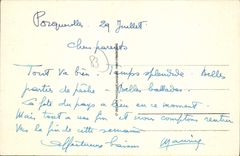 Porquerolles 29 Juillet
Chers parents
Tout va bien. Temps splendide. Belles
parties de pêche - Belles ballades.
La fête du pays a lieu en ce moment.
Mais tout a une fin et nous comptons rentrer
vers la fin de cette semaine
Affectueux baisers